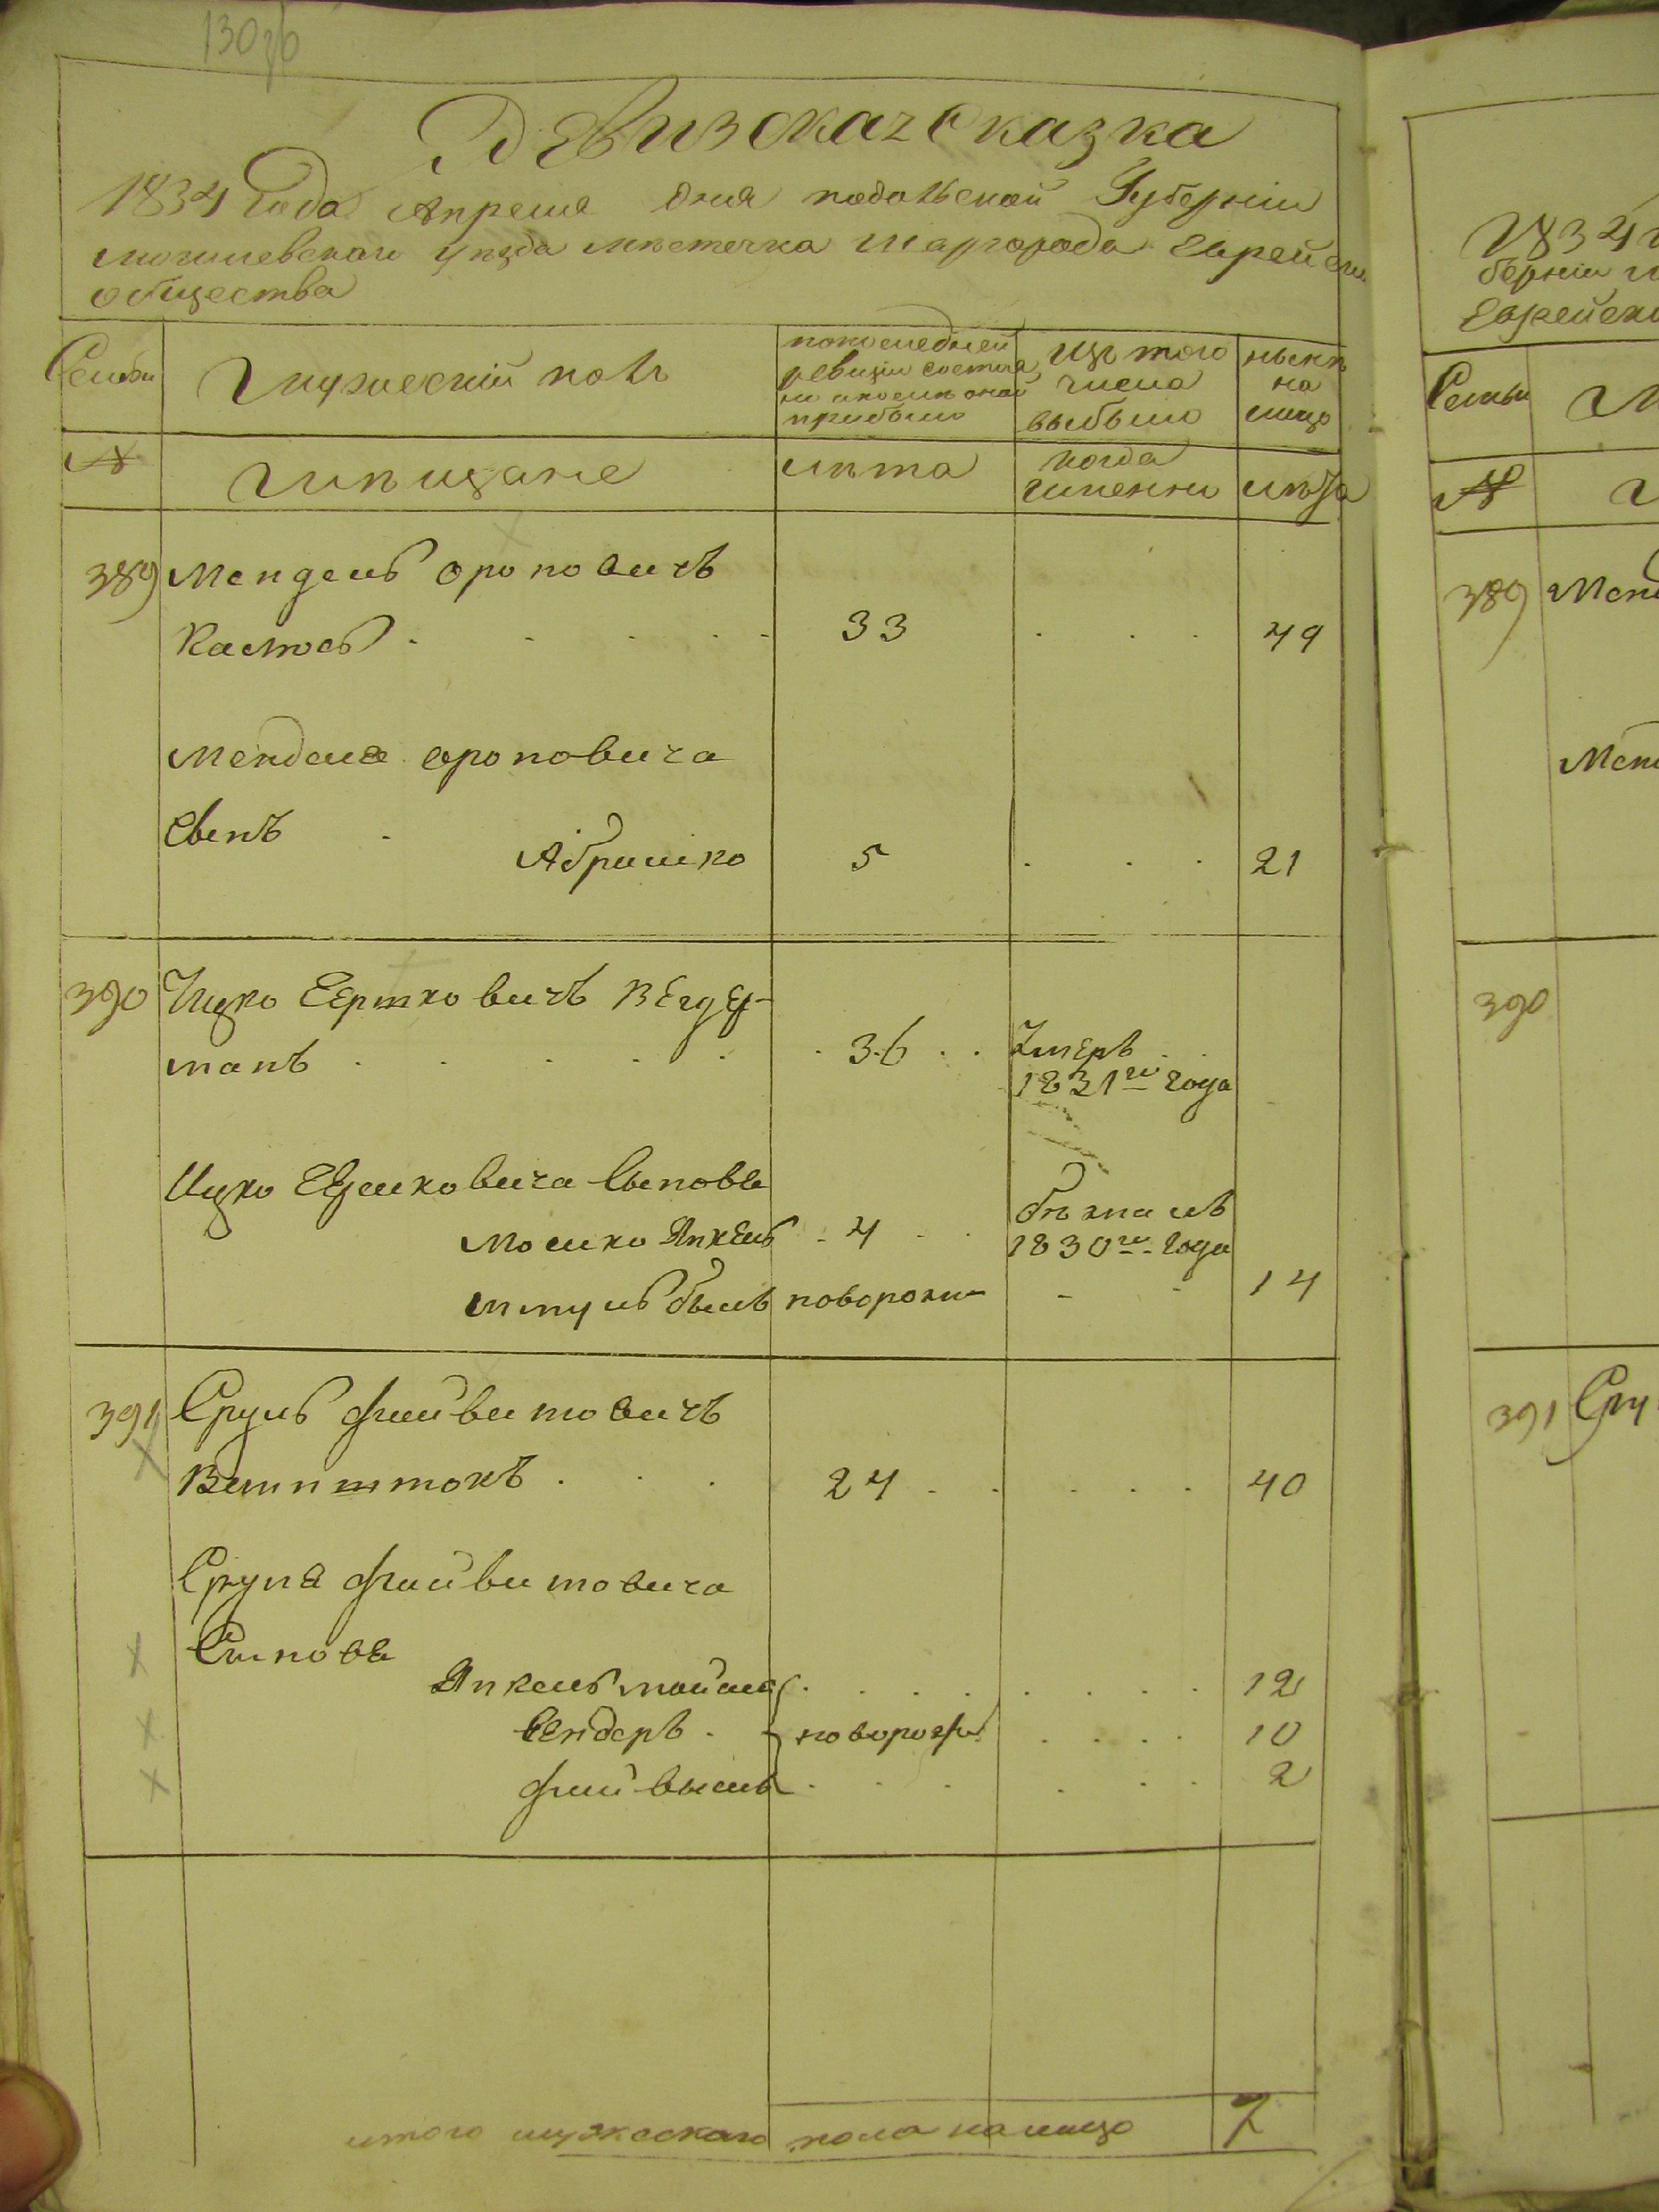 130 об
Ревизская Сказка
1834 Года Апреля дня подольской Губернїи
могилевского уѣзда мѣстечка Шаргорода Еврейскаго
общества
Семьи
Мужескїй полъ
попоследней
ревизїи состоя
ло ипослѣ оной
прибыло
Изъ того
числа
выбыло
нынѣ
на
лицо
№
Мѣщане
лѣта
когда
имянно
лѣта
389 Мендель Ароновичъ
33 49
Менделя Ароновича
Сынъ
Абрамко 5 21
390 Ицко Гершковичъ
манъ 36 Умеръ
1831го года
Ицко Гершковича Сыновья
Мошко Янкель 4 бѣжалъ
1830го года
новорожн 14
391 Сруль Файвишовичъ
Вейнштокъ 24 40
Сруля Файвишовича
Сыновья
Янкель 12
Сендеръ новорож 10
Файвышъ 2
итого мужескаго пола налицо 7
1834
бернїи
Еврейск
Семьи
М
№
М
389 Менд
Менд
390
391 Сру